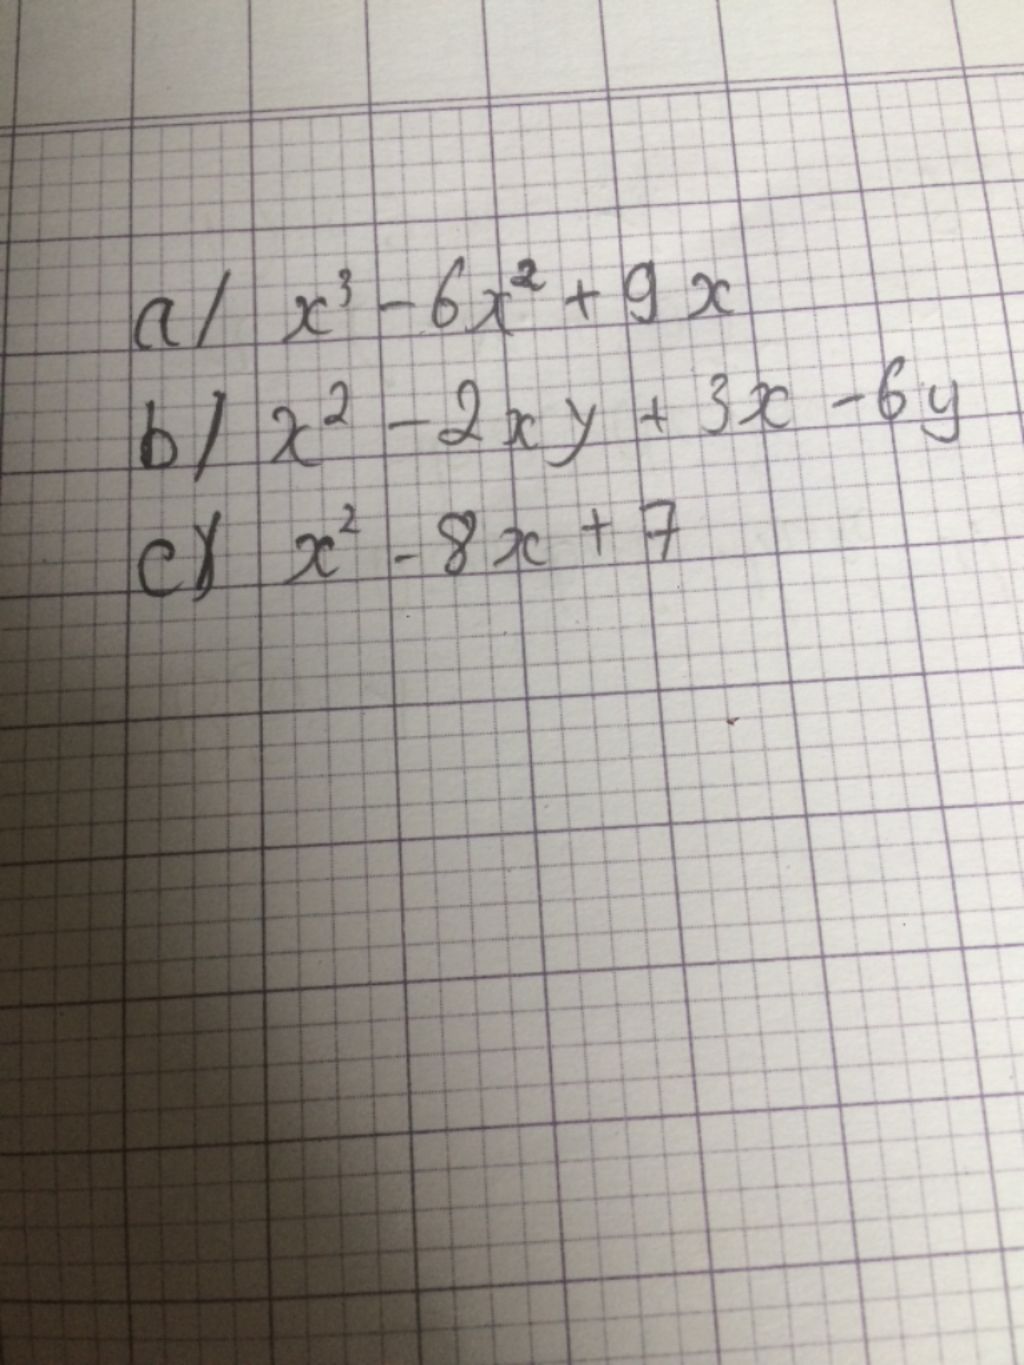 a/ x³ - 6x² + 9x
b/ x² - 2xy + 3x - 6y
c/ x² - 8x + 7